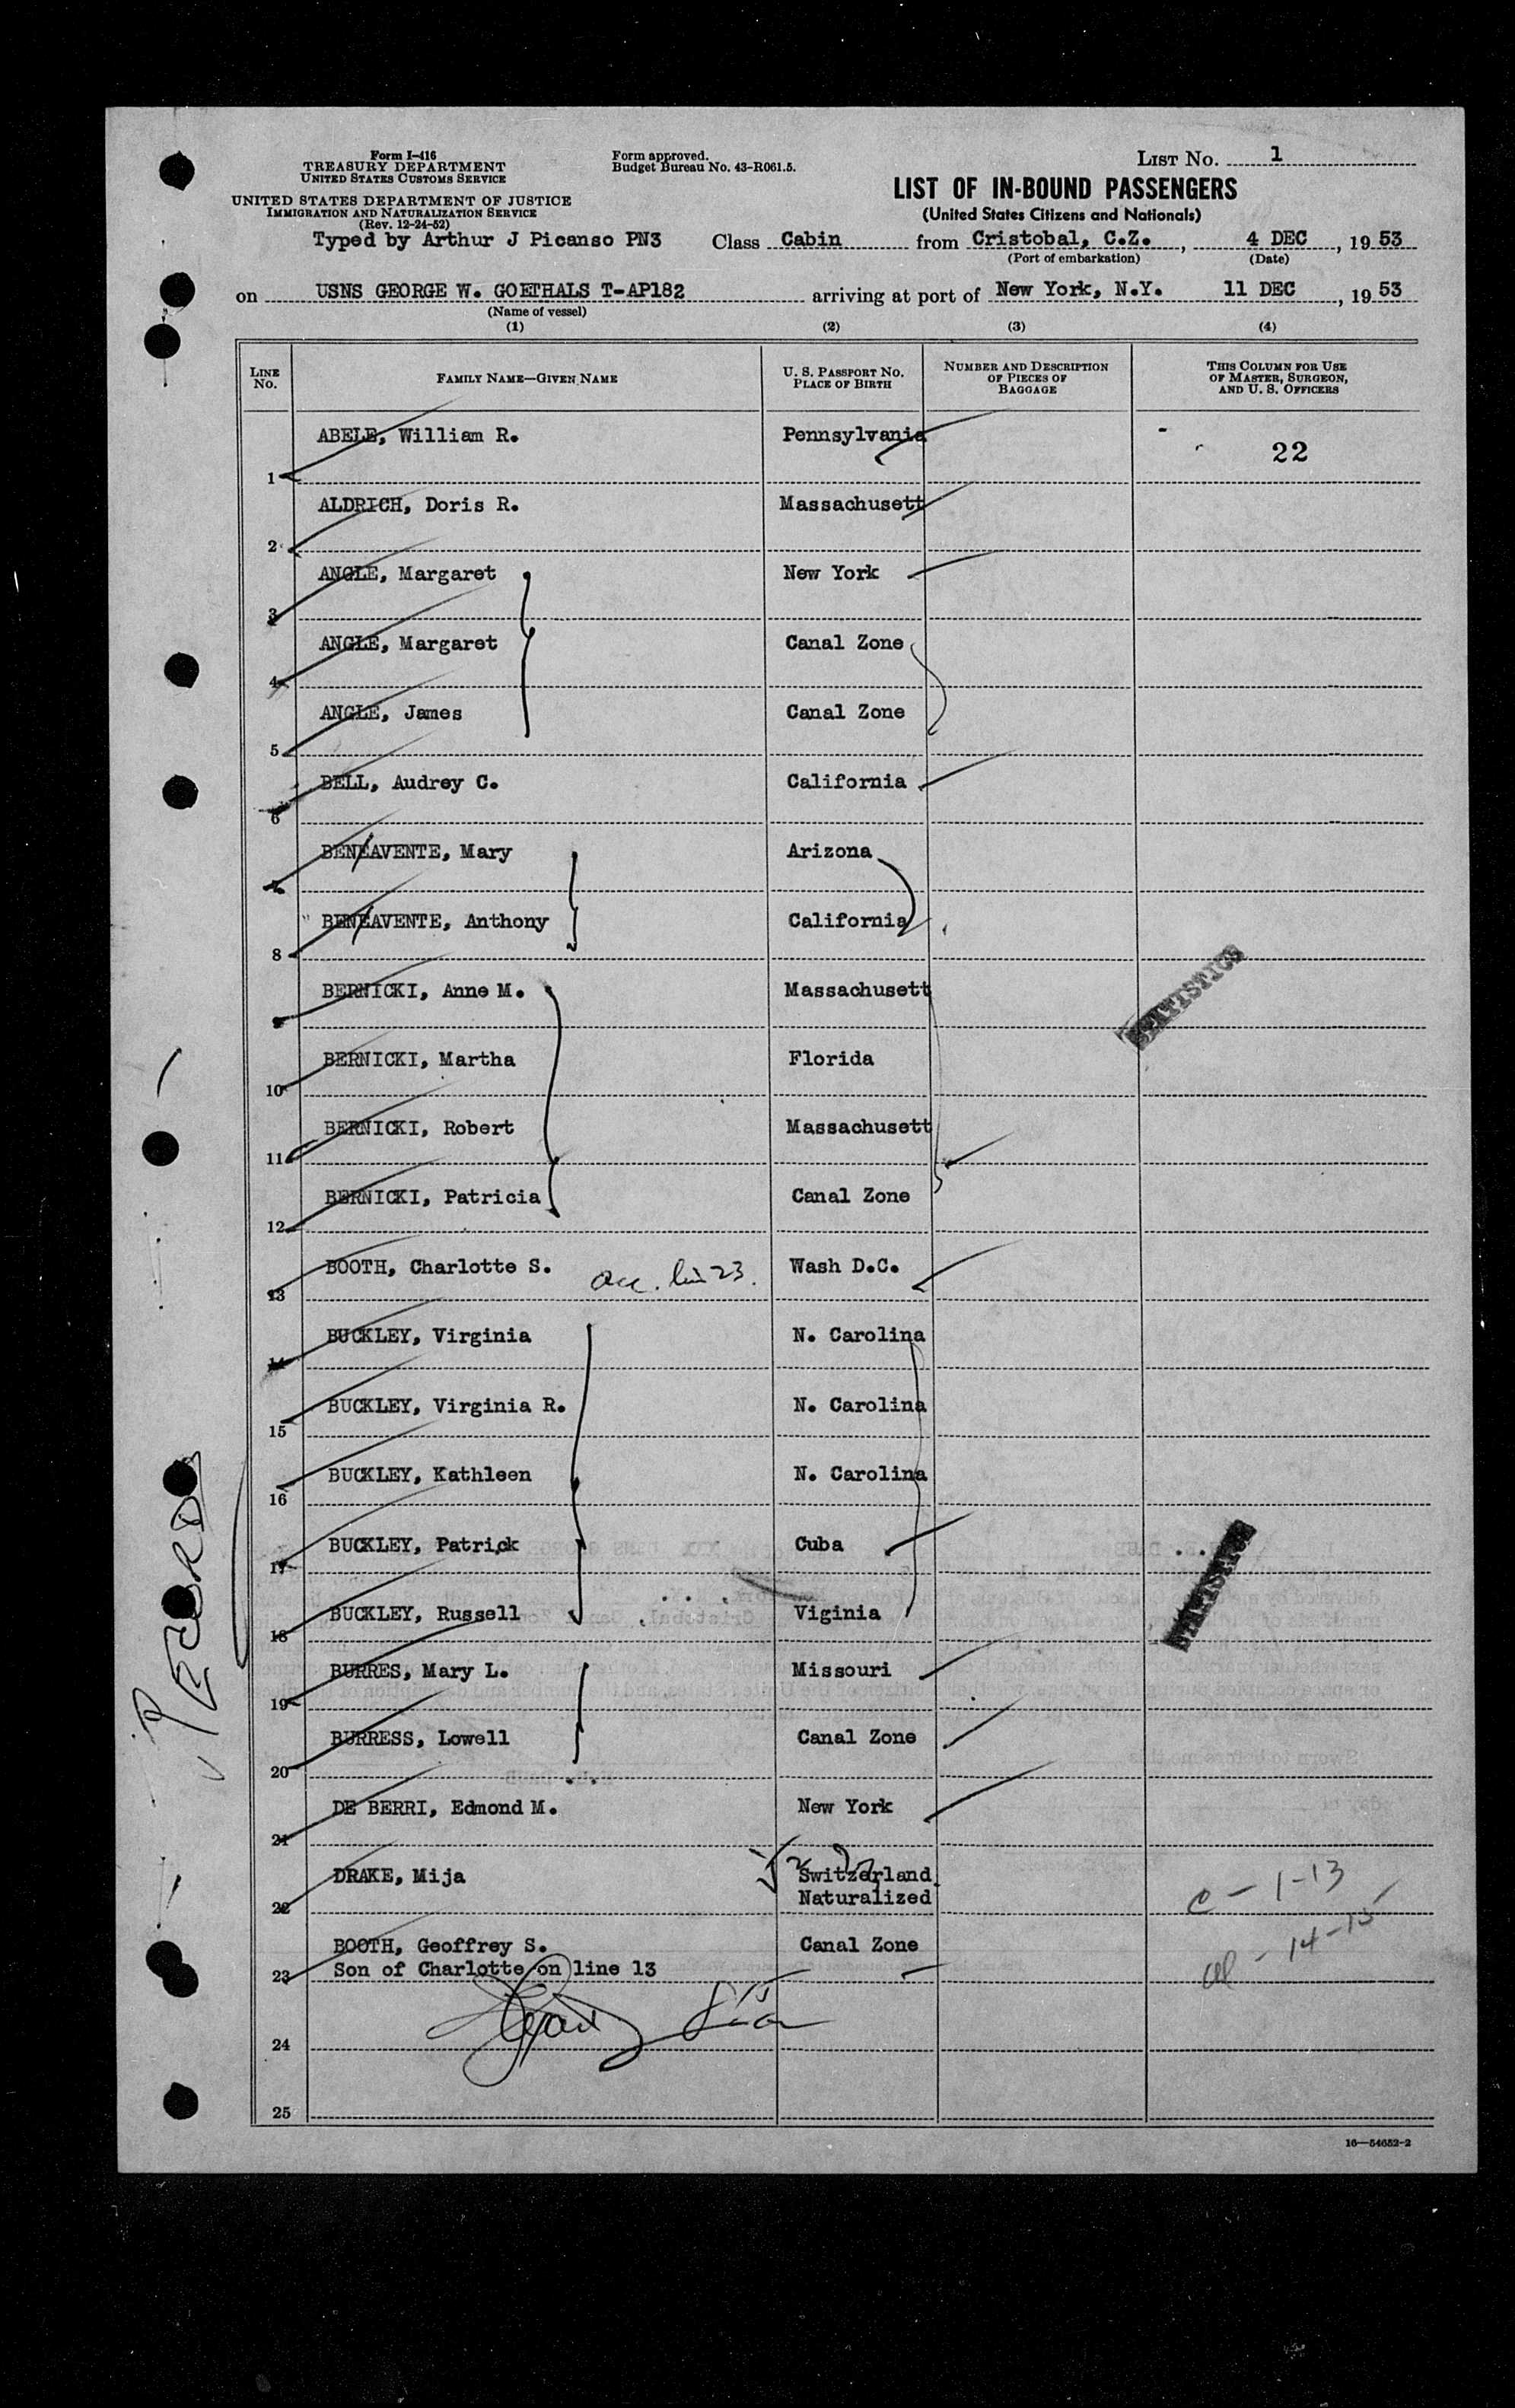 Form I-416
TREASURY DEPARTMENT
UNITED STATES CUSTOMS SERVICE
UNITED STATES DEPARTMENT OF JUSTICE
IMMIGRATION AND NATURALIZATION SERVICE
(Rev. 12-24-52)
Form approved.
Budget Bureau No. 43-R061.5.
LIST NO. 1
LIST OF IN-BOUND PASSENGERS
(United States Citizens and Nationals)
Typed by Arthur J Picanso PN3 Class Cabin from Cristobal, C.Z., 4 DEC, 1953
(Port of embarkation) (Date)
on USNS GEORGE W. GOETHALS T-AP182 arriving at port of New York, N.Y. 11 DEC, 1953
(Name of vessel)
(1) (2) (3) (4)
LINE NO. FAMILY NAME—GIVEN NAME U. S. PASSPORT NO. PLACE OF BIRTH NUMBER AND DESCRIPTION OF PIECES OF BAGGAGE THIS COLUMN FOR USE OF MASTER, SURGEON, AND U. S. OFFICERS
1 ABELE, William R. Pennsylvania 22
2 ALDRICH, Doris R. Massachusett
3 ANGLE, Margaret New York
4 ANGLE, Margaret Canal Zone
5 ANGLE, James Canal Zone
6 BELL, Audrey C. California
7 BENEAVENTE, Mary Arizona
8 BENEAVENTE, Anthony California
9 BERNICKI, Anne M. Massachusett
STATISTICS
10 BERNICKI, Martha Florida
11 BERNICKI, Robert Massachusett
12 BERNICKI, Patricia Canal Zone
13 BOOTH, Charlotte S. acc. lin 23. Wash D.C.
14 BUCKLEY, Virginia N. Carolina
15 BUCKLEY, Virginia R. N. Carolina
16 BUCKLEY, Kathleen N. Carolina
17 BUCKLEY, Patrick Cuba
18 BUCKLEY, Russell Viginia
STATISTICS
RECORD
19 BURRES, Mary L. Missouri
20 BURRESS, Lowell Canal Zone
21 DE BERRI, Edmond M. New York
22 DRAKE, Mija Switzerland
Naturalized
c - 1-13
23 BOOTH, Geoffrey S. Canal Zone
Son of Charlotte on line 13
24
25
16—54652-2